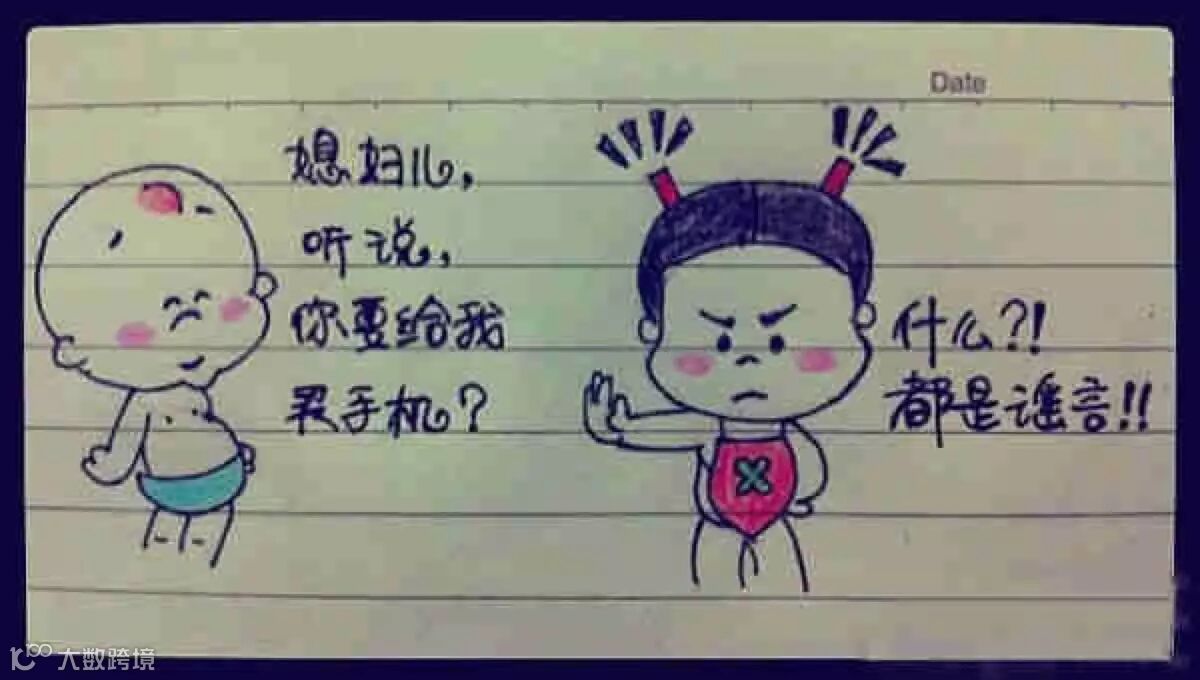 Date
媳妇儿,
听说,
你要给我
买手机?
什么?!
都是谣言!!
大数跨境